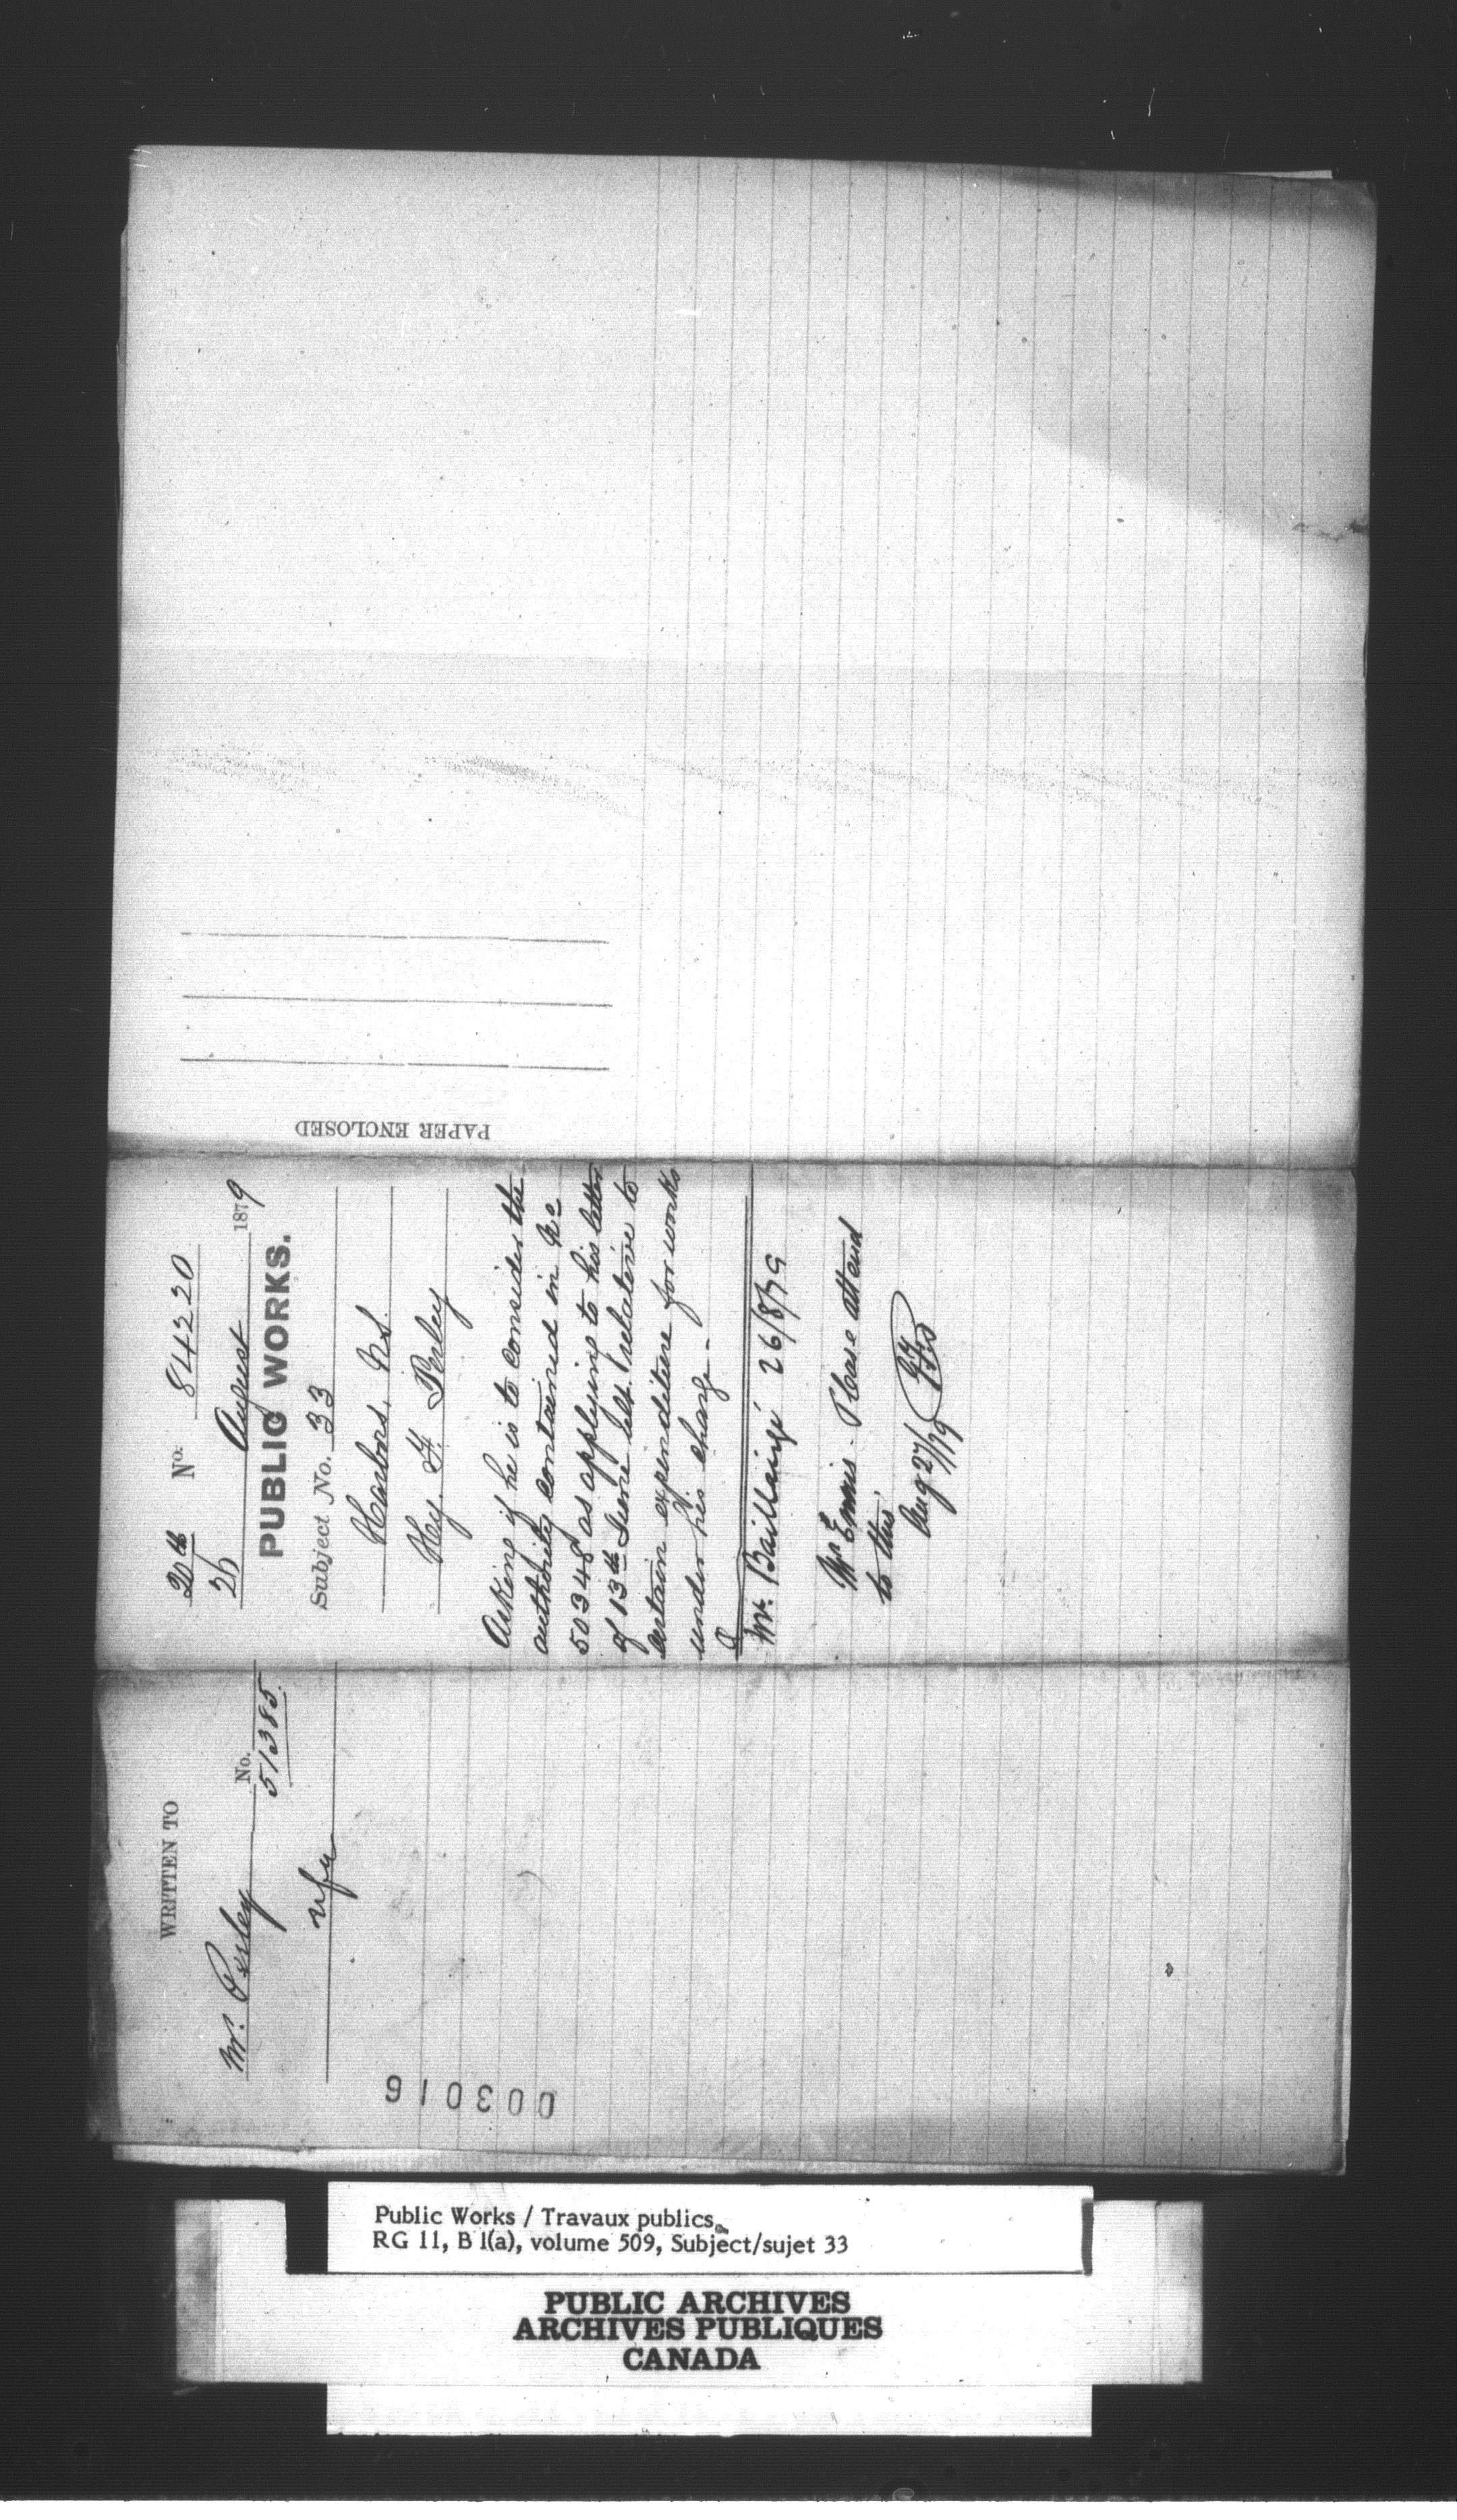 WRITTEN TO
Mr. Perley
No. 51385
20th No. 84220
26 August 1879
PUBLIC WORKS.
Subject No. 33
Harbors, N.S.
Hy. F. Perley
Asking if he is to consider the
authority contained in No
50348 as applying to his letter
of 13th June last relative to
certain expenditure for works
under his charge -
Mr. Baillairgé 26/8/79
Mr Ennis - Please attend
to this
Aug 27/79
PAPER ENCLOSED
003016
Public Works / Travaux publics
RG 11, B 1(a), volume 509, Subject/sujet 33
PUBLIC ARCHIVES
ARCHIVES PUBLIQUES
CANADA